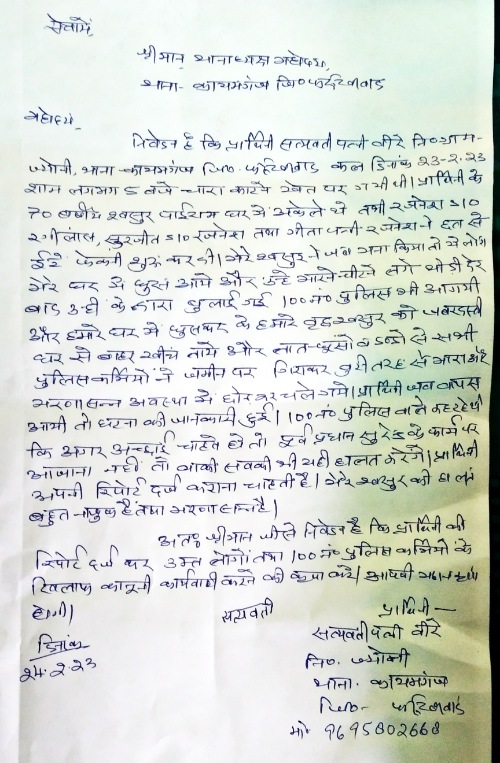 सेवामें,
श्रीमान थानाध्यक्ष महोदय,
थाना- कायमगंज जि० फर्रुखाबाद
महोदय,
निवेदन है कि प्रार्थिनी सत्यवती पत्नी वीरे नि० ग्राम-
ज्योनी, थाना-कायमगंज जि० फर्रुखाबाद कल दिनांक 23-2-23
शाम लगभग 5 बजे चारा काटने खेत पर गयी थी। प्रार्थिनी के
70 वर्षीय श्वसुर घर में अकेले थे तभी रजनेश S/0
रंगीलाल, सुरजीत S/0 रजनेश तथा गीता पत्नी रजनेश ने छत से
ईंटें फेंकनी शुरू कर दी। मेरे श्वसुर ने जब मना किया तो ये लोग
मेरे घर में घुस आये और उन्हें मारने पीटने लगे थोडी देर
बाद उन्हीं के द्वारा बुलाई गई 100 नं० पुलिस भी आ गयी
और हमारे घर में घुसकर के हमारे वृद्ध श्वसुर को जबरदस्ती
घर से बाहर खींच लाये और लात-घूसों व डन्डो से सभी
पुलिस कर्मियों ने जमीन पर गिराकर बुरी तरह से मारा और
मरणासन्न अवस्था में छोड़कर चले गये। प्रार्थिनी जब वापस
आयी तो घटना की जानकारी हुई। 100 नं० पुलिस वाले कह रहे थे
कि अगर अच्छाई चाहते हो तो पूर्व प्रधान सुरेन्द्र के फार्म पर
आजाना नहीं तो बाकी सबकी भी यही हालत करेंगे। प्रार्थिनी
अपनी रिपोर्ट दर्ज कराना चाहती है। मेरे श्वसुर की हालत
बहुत नाजुक है तथा मरणासन्न है।
अतः श्रीमान जी से निवेदन है कि प्रार्थिनी की
रिपोर्ट दर्ज कर उक्त लोगों तथा 100 नं० पुलिस कर्मियों के
खिलाफ कानूनी कार्यवाही करने की कृपा करें। आपकी महान कृपा
होगी।
सत्यवती
प्रार्थिनी —
सत्यवती पत्नी वीरे
नि०. ज्योनी
थाना- कायमगंज
जि०- फर्रुखाबाद
मो० 9695802668
दिनांक
24.2.23